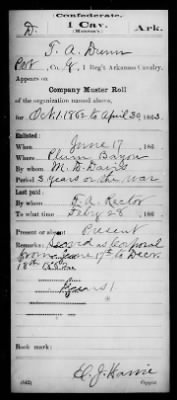 Confederate.
1 Cav.
(Monroe's.)
D. Ark.
T. A. Dunn
Pvt, Co. G, 1 Reg't Arkansas Cavalry.
Appears on
Company Muster Roll
of the organization named above,
for Oct. 1. 1862 to April 30, 1863.
Enlisted:
When June 17, 186
Where Plum Bayou
By whom M. D. Davis
Period 3 years or the War
Last paid:
By whom T. A. Rector
To what time Feby 28, 186
Present or absent Present
Remarks: Served as Corporal
from June 17th to Decr.
18th 1862
Book mark:
Copyist.
(642)